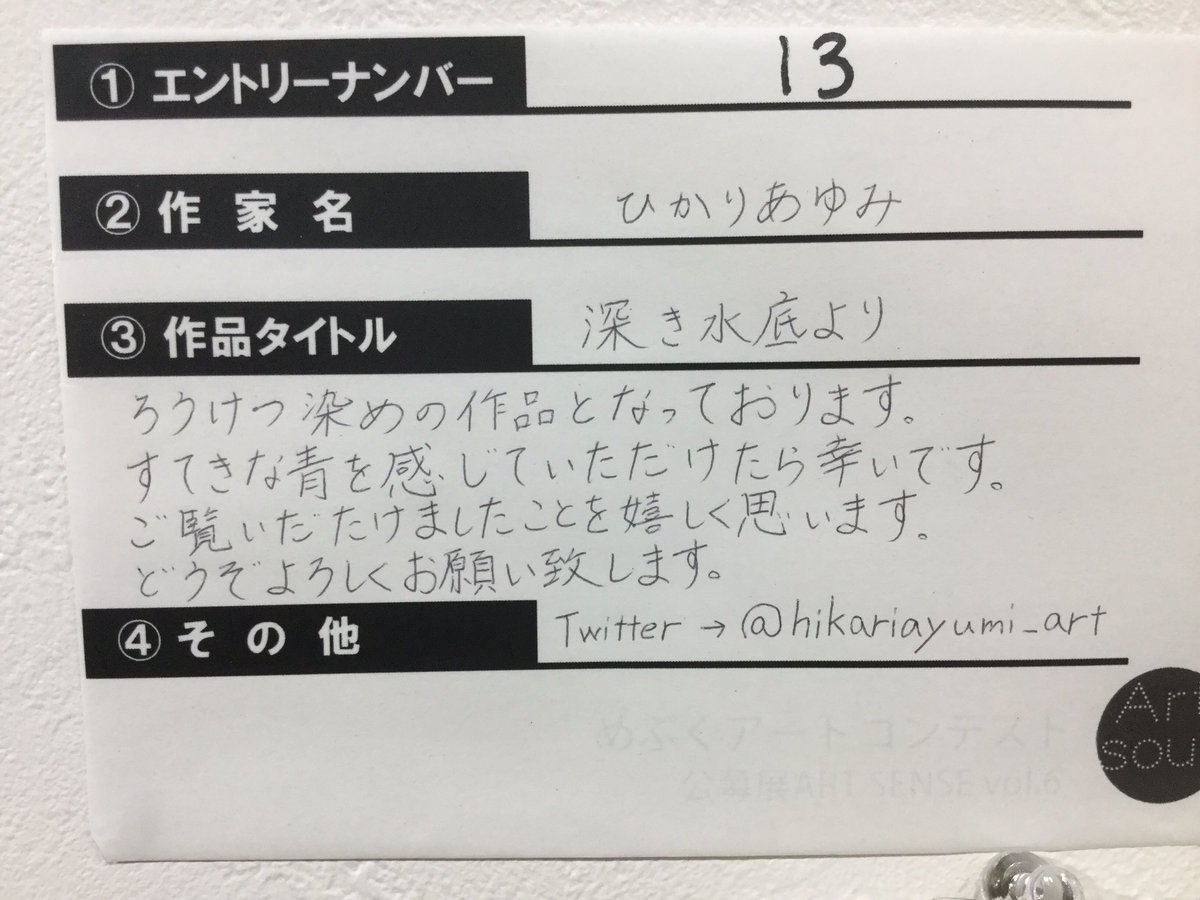 ① エントリーナンバー 13
② 作家名 ひかりあゆみ
③ 作品タイトル 深き水底より
ろうけつ染めの作品となっております。
すてきな青を感じていただけたら幸いです。
ご覧いだたけましたことを嬉しく思います。
どうぞよろしくお願い致します。
④ その他 Twitter → @hikariayumi_art
めぶくアートコンテスト
公募展ART SENSE vol.6
Art
sou